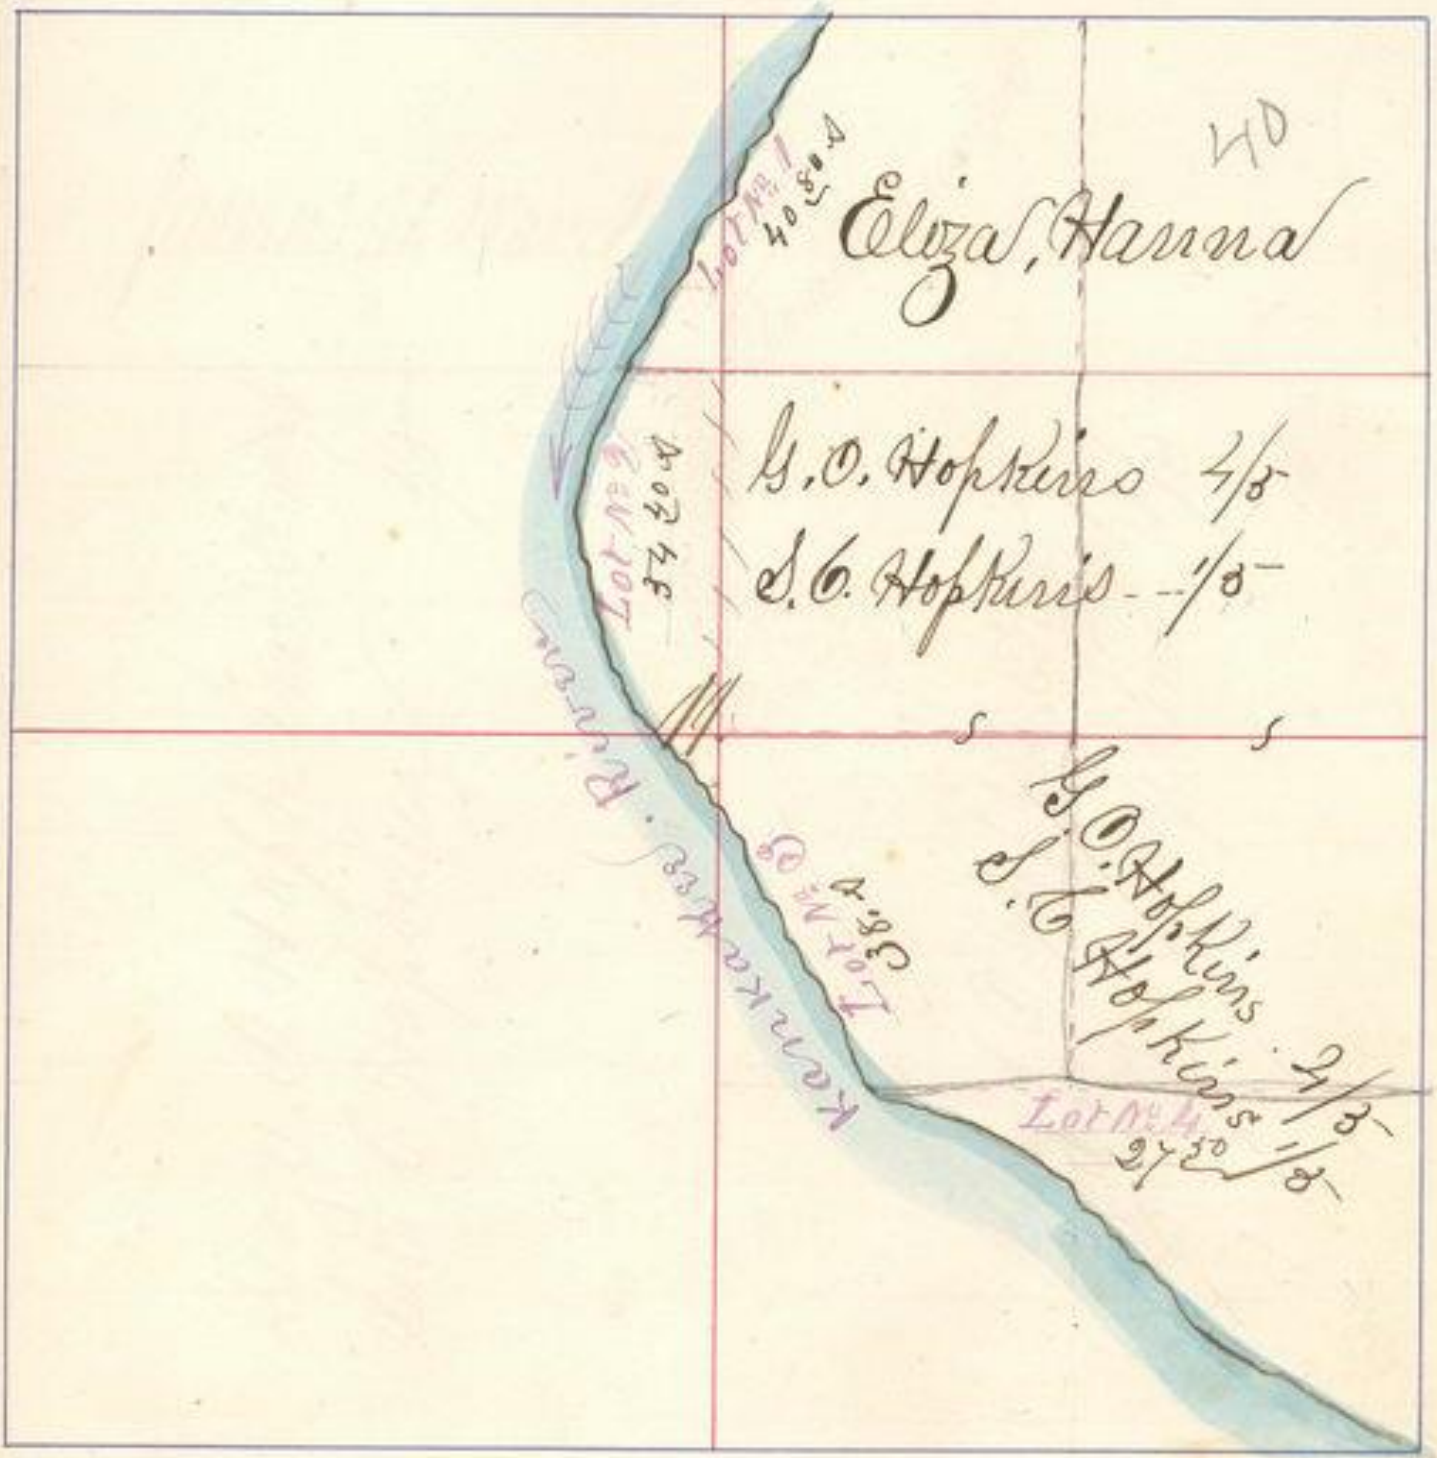 40
Lot No. 1
40 80 A
Eliza, Hanna
Lot No. 2
34 40 A
G. O. Hopkins 4/5
S. C. Hopkins -- 1/5
Kankakee. River
Lot No. 3
38. A
G. O. Hopkins . 4/5
S. C Hopkins 1/5
Lot No. 4
27 50